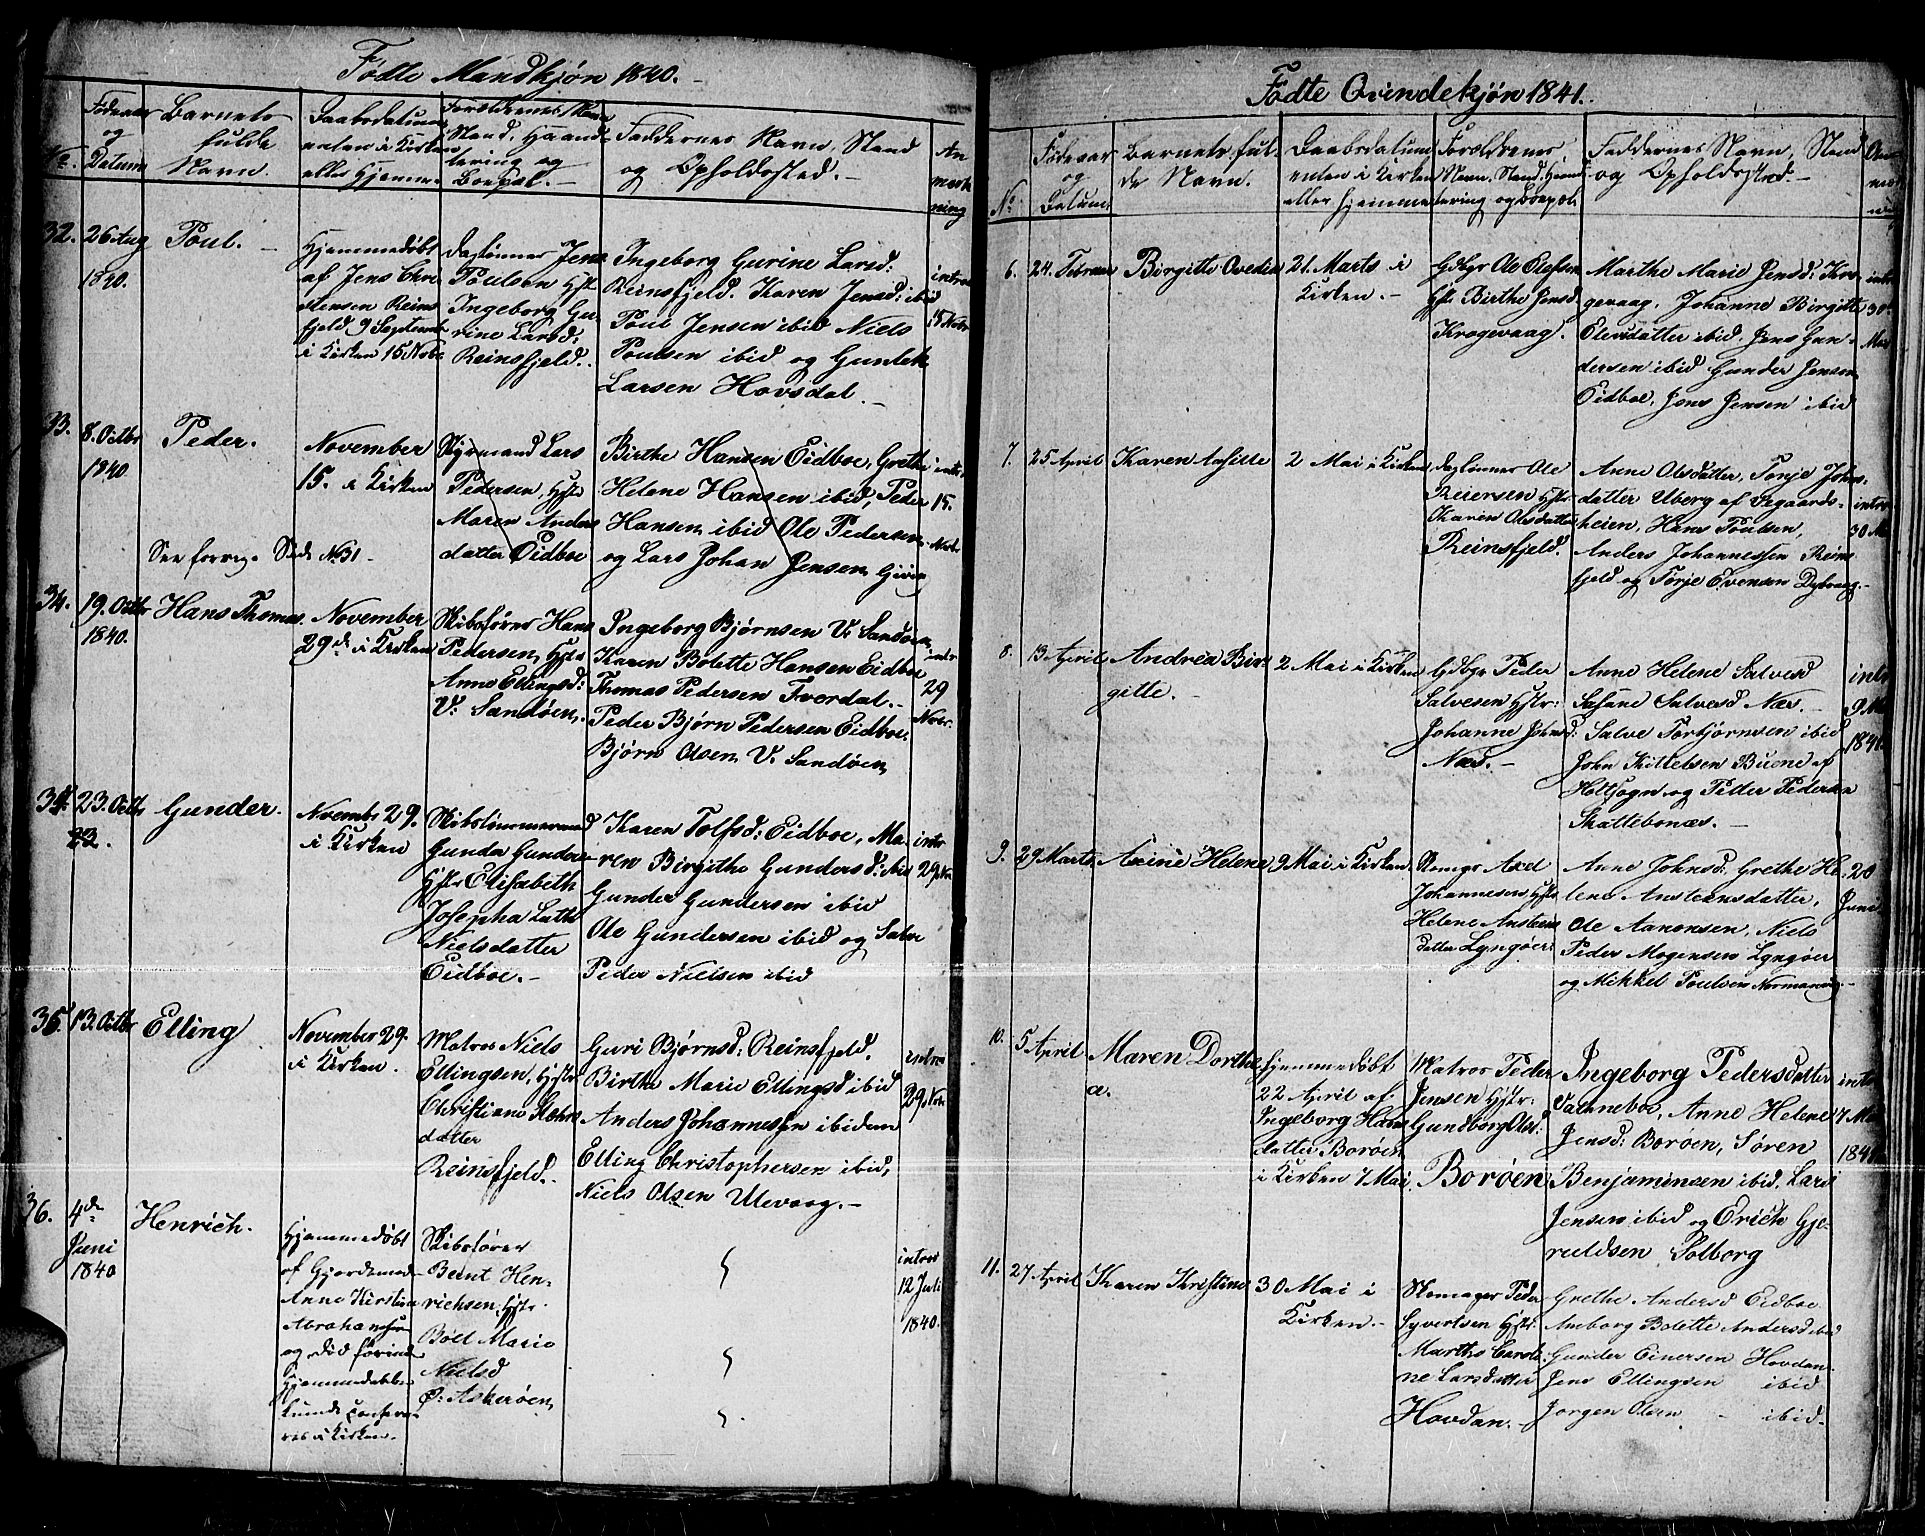 Fødte Mandkjøn 1840.
No.
Fødeaar
og
Datum
Barnets
fulde
Navn.
Daabsdatum
enten i Kirken
eller Hjemme.
Forældrenes Navn
Stand, Haand-
tering og
Boepæl.
Faddernes Navn, Stand
og Opholdssted.
An
mærk
ning
32.
26 Aug
1840.
Poul.
Hjemmedøbt
af Jens Chri
stensen Reins
fjeld 9 Septembr
i Kirken 15 Nobr.
Daglønner Jens
Poulsen Hstr
Ingeborg Gu-
rine Larsd:
Reinsfjeld.
Ingeborg Gurine Larsd:
Reinsfjeld. Karen Jensd: ibid
Poul Jensen ibid Niels
Poulsen ibid og Gunlek
Larsen Hovsdal.
introd
15 Nobr
33.
8. Octbr
1840
Peder.
November
15. i Kirken
Styrmand Lars
Pedersen, Hstr
Maren Anders
datter Eidboe
Birthe Hansen Eidboe, Grethe
Helene Hansen ibid, Peder
Hansen ibid Ole Pedersen
og Lars Johan Jensen Gjeving
intr
15.
Nobr.
See forrige Side No 31
34.
19. Octbr
1840.
Hans Thomas.
November
29de i Kirken
Skibsfører Hans
Pedersen, Hstr
Anne Ellingsd:
V: Sandøen.
Ingeborg Bjørnsen V: Sandøen,
Karen Bolette Hansen Eidboe
Thomas Pedersen Fverdal.
Peder Bjørn Pedersen Eidboe.
Bjørn Olsen V: Sandøen
intr
29
Nobr.
34.
23. Octbr
Gunder.
Novembr 29.
i Kirken
Skibstømmermand
Gunder Gunders
Hstr Elisabeth
Josepha Cath
Nielsdatter
Eidboe.
Karen Tolfsd: Eidboe, Ma-
ren Birgithe Gundersd: ibid
Gunder Gundersen ibid
Ole Gundersen ibid og Salve
Peder Nielsen ibid
intr
29 Nbr
35
13. Octbr
Elling
November 29.
i Kirken.
Matros Niels
Ellingsen, Hstr
Christiane Stehns
datter
Reinsfjeld.
Guri Bjørnsd: Reinsfjeld.
Birthe Marie Ellingsd ibid
Anders Johannesen ibidem
Elling Christophersen ibid,
Niels Olsen Ulevaag.
intro
29 Nbr
36.
4de
Juni
1840
Henrich.
Hjemmedøbt
af Gjordemod-
Anne Kirstine
Abrahamsen
og død førend
Hjemmedaaben
kunde confere-
res i Kirken.
Skibsfører
Bernt Hen-
richsen, Hstr.
Boel Marie
Nielsd
Ø: Askerøen
introd
12 Juli
1840.
Fødte Qvindekjøn 1841.
No
Fødeaar
og
Datum
Barnets ful-
de Navn.
Daabsdatum
enten i Kirken
eller hjemme
Forældrenes
Navn, Stand, Hand-
tering og Boepæl
Faddernes Navn, Stand
og Opholdssted.
6.
24. Februar
Birgitte Ovedia
21. Marts i
Kirken.
Gdbgr Ole Olafsen
Hst. Birthe Jensd
Krogevaag.
Marthe Marie Jensd: Kro-
gevaag, Johanne Birgitte
Olensdatter ibid. Jens Gun-
dersen ibid Gunder Jensen
Eidboe, Jens Jensen ibid
intro
30te
Mai
7.
25 April
Karen Aasille
2 Mai i Kirken
Daglønner Ole
Reiersen Hstr
Karen Olsdatter
Reinsfjeld.
Anne Olsdatter, Torje Johns-
datter Uberg af Vegaards-
heien, Hans Poulsen,
Anders Johannessen Reins
fjeld og Torje Evensen Dybvaag.
intro
30 Mai
8.
13 April
Andrea Bir-
gitte.
2 Mai i Kirken
Gdbgr Peder
Salvesen Hstr:
Johanne Johnsd:
Næs.
Anne Helene Salvesd
Safane Salvesd Næs.
Salve Torbjørnsen ibid
John Kittelsen Buene af
Holtsogn og Peder Pedersen
Skattebonæs.
intr
9. Mai
1841
9.
29 Marts
Axine Helene
9 Mai i Kirken
Skomgr Axel
Johannesen Hstr
Helene Anstens
datter Lyngøer
Anne Johnsd: Grethe He-
lene Ansteensdatter,
Ole Aanonsen, Niels
Peder Mogensen Lyngøer
og Mikkel Poulsen Normanvig.
20
Juni
10.
5 April
Maren Dorthe
a.
Hjemmedøbt
22 April af
Ingeborg Hans
datter Borøen
i Kirken 7 Mai
Matros Peder
Jensen Hstr:
Gundborg Olsd:
Borøen
Ingeborg Pedersdatter
Sanneboe, Anne Helene
Jensd: Borøen, Søren
Benjaminsen ibid, Lars
Jensen ibid og Erich Gje-
ruldsen Solborg
intr
7 Mai
1841
11.
27 April
Karen Kristine
30 Mai i
Kirken.
Skomager Peder
Syvertsen Hstr.
Marthe Caroli
ne Larsdatter
Hovdan.
Grethe Andersd Eidboe
Amborg Bolette Andersd ibid
Gunder Einersen Hovdan.
Jens Ellingsen ibid
Jørgen Olsen - ibid.